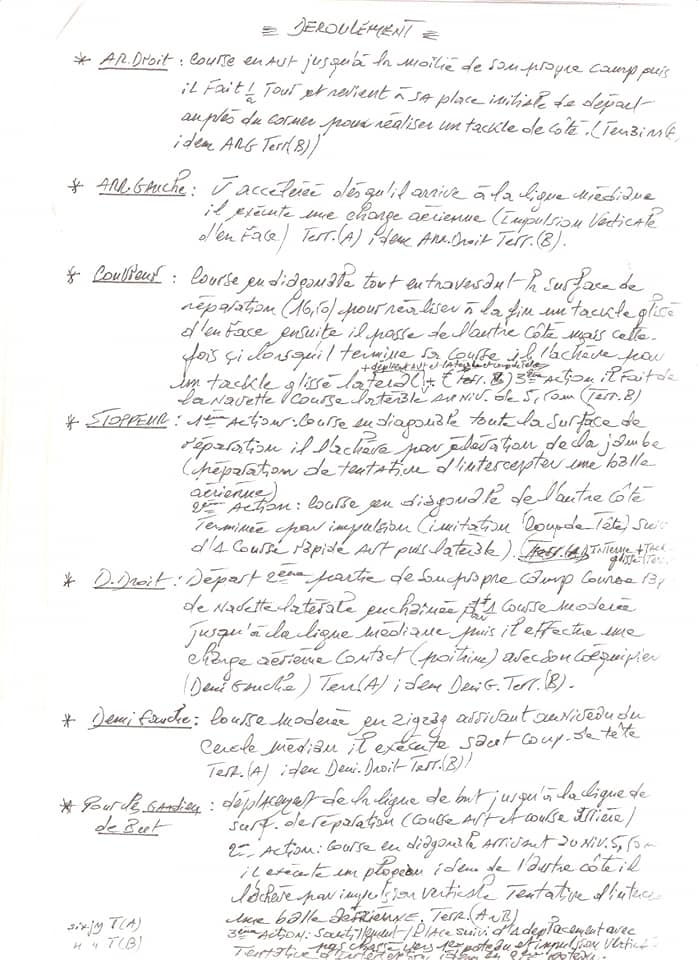 = DEROULEMENT =
* AR.Droit : Course en AVT jusqu'à la moitié de son propre camp puis
il Fait 1/2 Tour et revient à SA place initiale de départ
auprès du corner pour réaliser un tackle de côté. (
idem ARG Terr.(B))
* ARR.Gauche : V accélérée dès qu'il arrive à la ligne médiane
il exécute une charge aérienne (Impulsion Verticale
d'en Face) Terr.(A) idem Arr.Droit Terr.(B).
* Couvreur : Course en diagonale tout en traversant la surface de
réparation (16,50) pour réaliser à la fin un tackle glissé
d'en Face ensuite il passe de l'autre côté mais cette
fois çi lorsqu'il termine sa course il l'achève par
+ déplact AVT et latéral et coup de tête
un tackle glissé latéral (Terr. B) 3ème Action il fait de
la Navette course latérale au NIV. de 5,50m (Terr.B)
* STOPPEUR : 1ère Action: Course en diagonale toute la surface de
réparation il l'achève par élévation de la jambe
(préparation de tentative d'intercepter une balle
aérienne)
2ème Action : Course en diagonale de l'autre côté
Terminée par impulsion (imitation Coup de Tête) suivi
d'1 Course rapide AVT puis latérale). Interne + TACK
glissé (Terr.
* D.Droit : Départ 2ème partie de son propre camp course
de Navette latérale enchaînée d'1 course modérée
jusqu'à la ligne médiane puis il effectue une
charge aérienne contact (poitrine) avec son coéquipier
(Demi Gauche) Terr.(A) idem Demi G. Terr.(B).
* Demi Gauche : Course modérée en zigzag arrivant au niveau du
cercle médian il exécute saut coup de tête
Terr.(A) idem Demi.Droit Terr.(B)
* Pour les Gardien : déplacement de la ligne de but jusqu'à la ligne de
de But
surf. de réparation (Course AVT et course arrière)
2e Action : Course en diagonale Arrivant au NIV. 5,50m
il exécute un plongeon idem de l'autre côté il
l'achève par impulsion verticale Tentative d'interc
une balle aérienne. Terr. (A et B)
3ème Action : Sautillement / Place suivi d'1 déplacement avec
pas chassé vers 1er poteau et impulsion Vertical
Tentative d'interception idem au 2ème poteau.
T(A)
" " T(B)